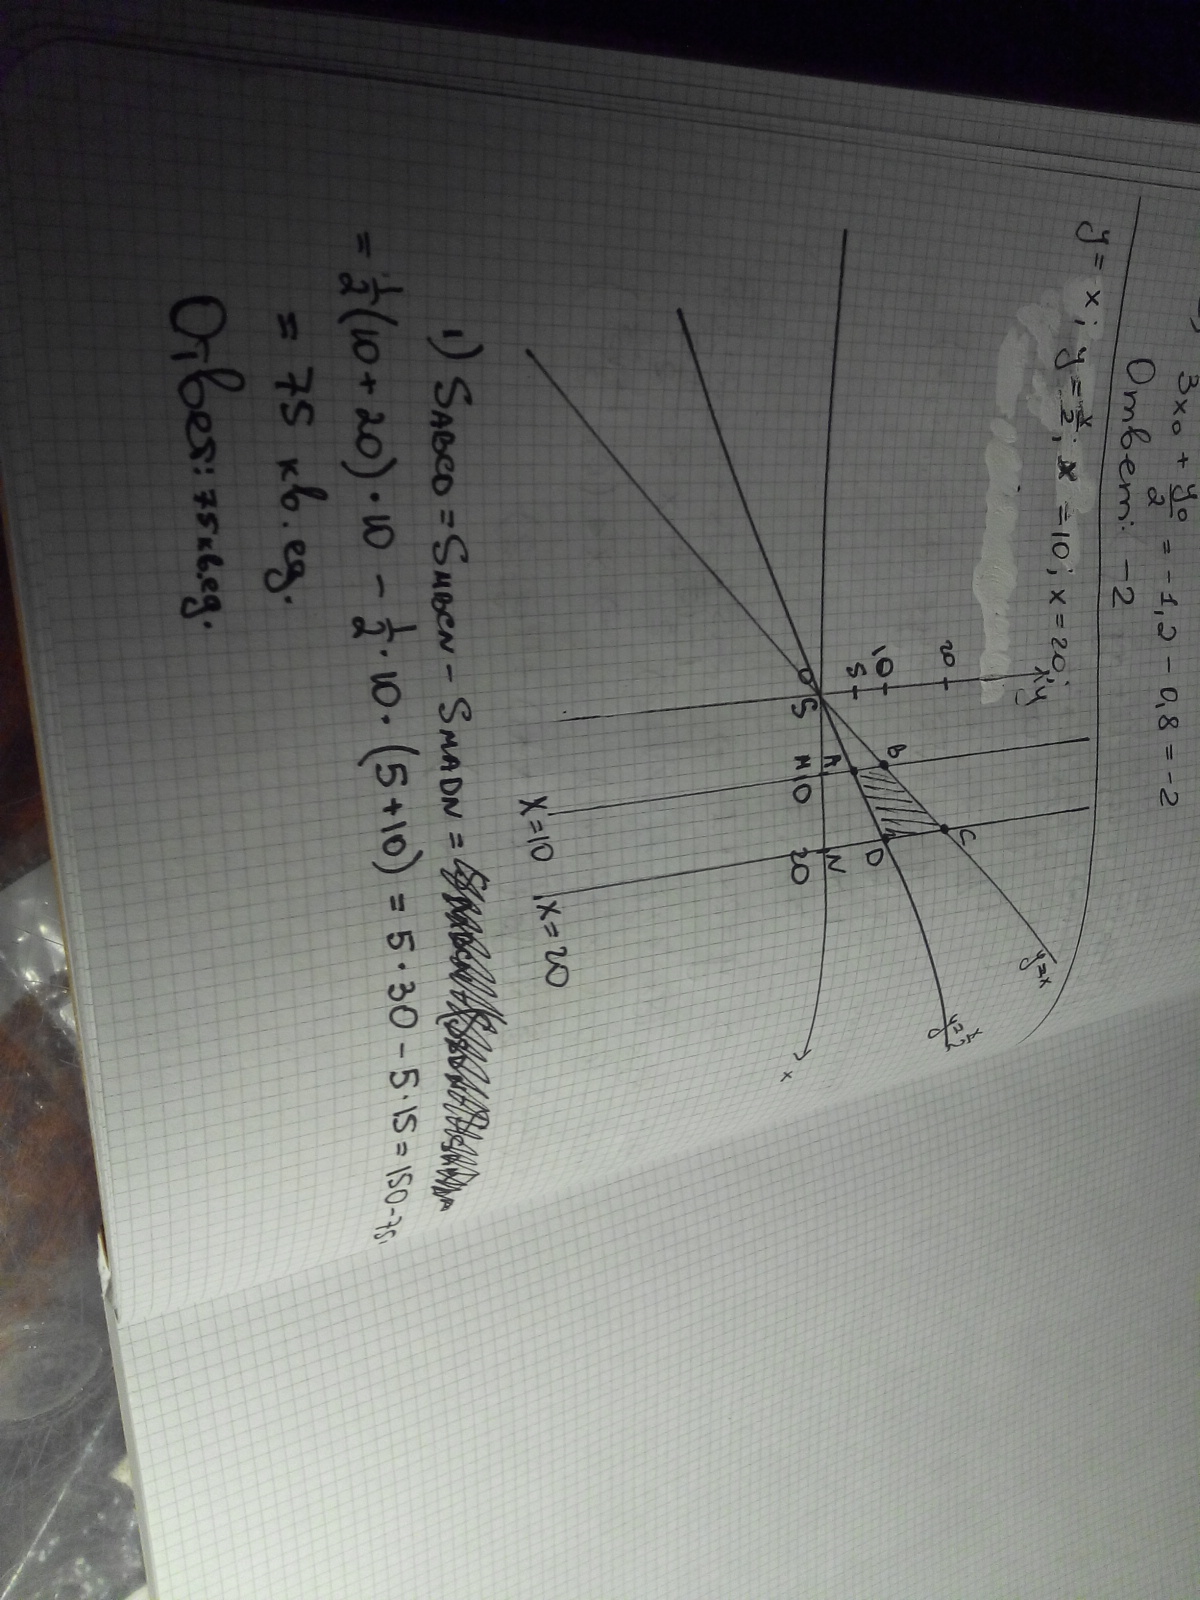 3x₀ + y₀/2 = -1,2 - 0,8 = -2
Ответ: -2
y = x; y = x/2; x = 10; x = 20;
y
20
10
5
B
C
y=x
y=x/2
O
A
D
5
M
10
N
20
x
x=10
x=20
1) SABCD = SMBCN - SMADN =
= 1/2(10+20)·10 - 1/2·10·(5+10) = 5·30 - 5·15 = 150-75
= 75 кв.ед.
Ответ: 75 кв.ед.